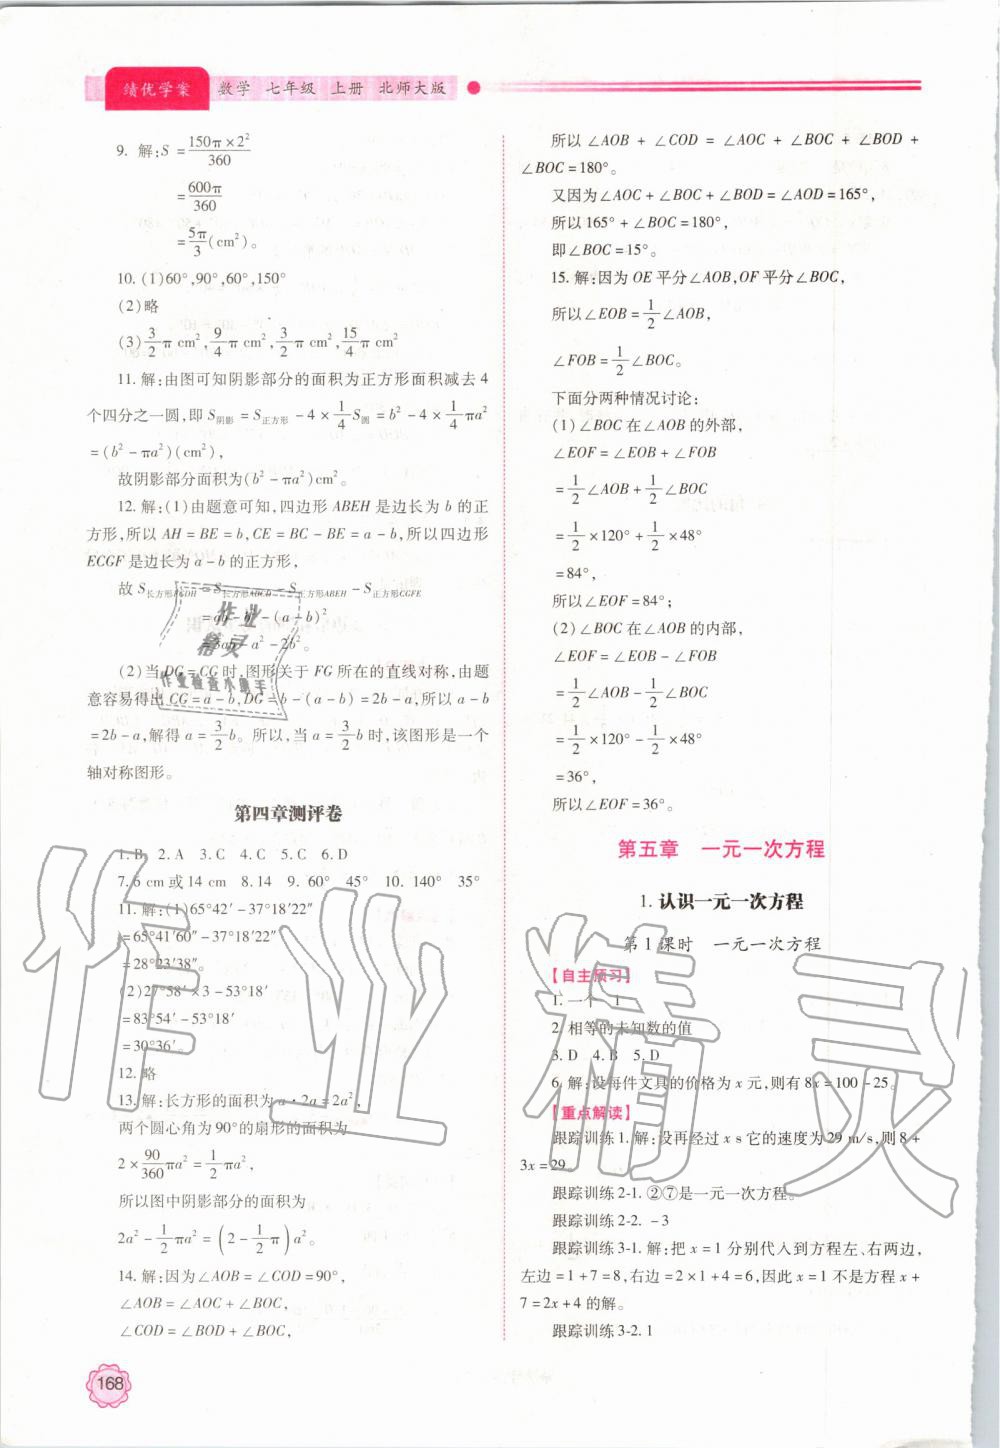 绩优学案 数学 七年级 上册 北师大版
9. 解:S = 150π×2²/360
= 600π/360
= 5π/3 (cm²)。
10. (1)60°,90°,60°,150°
(2)略
(3) 3/2 π cm², 9/4 π cm², 3/2 π cm², 15/4 π cm²
11. 解:由图可知阴影部分的面积为正方形面积减去4
个四分之一圆,即 S阴影 = S正方形 − 4 × 1/4 S圆 = b² − 4 × 1/4 πa²
= (b² − πa²)(cm²),
故阴影部分面积为(b² − πa²)cm²。
12. 解:(1)由题意可知,四边形 ABEH 是边长为 b 的正
方形,所以 AH = BE = b,CE = BC − BE = a − b,所以四边形
ECGF 是边长为 a − b 的正方形,
故 S长方形FGDH = S长方形ABCD − S正方形ABEH − S正方形CGFE
= ab − b² − (a − b)²
= 3ab − a² − 2b²。
(2)当 DG = CG 时,图形关于 FG 所在的直线对称,由题
意容易得出 CG = a − b,DG = b − (a − b) = 2b − a,所以 a − b
= 2b − a,解得 a = 3/2 b。所以,当 a = 3/2 b 时,该图形是一个
轴对称图形。
第四章测评卷
1. B 2. A 3. C 4. C 5. C 6. D
7. 6 cm 或 14 cm 8. 14 9. 60° 45° 10. 140° 35°
11. 解:(1)65°42′ − 37°18′22″
= 65°41′60″ − 37°18′22″
= 28°23′38″。
(2)27°58′ × 3 − 53°18′
= 83°54′ − 53°18′
= 30°36′。
12. 略
13. 解:长方形的面积为 a · 2a = 2a²,
两个圆心角为 90°的扇形的面积为
2 × 90/360 πa² = 1/2 πa²,
所以图中阴影部分的面积为
2a² − 1/2 πa² = (2 − 1/2 π)a²。
14. 解:因为∠AOB = ∠COD = 90°,
∠AOB = ∠AOC + ∠BOC,
∠COD = ∠BOD + ∠BOC,
168
所以 ∠AOB + ∠COD = ∠AOC + ∠BOC + ∠BOD +
∠BOC = 180°。
又因为∠AOC + ∠BOC + ∠BOD = ∠AOD = 165°,
所以 165° + ∠BOC = 180°,
即∠BOC = 15°。
15. 解:因为 OE 平分∠AOB,OF 平分∠BOC,
所以∠EOB = 1/2 ∠AOB,
∠FOB = 1/2 ∠BOC。
下面分两种情况讨论:
(1)∠BOC 在∠AOB 的外部,
∠EOF = ∠EOB + ∠FOB
= 1/2 ∠AOB + 1/2 ∠BOC
= 1/2 × 120° + 1/2 × 48°
= 84°,
所以∠EOF = 84°;
(2)∠BOC 在∠AOB 的内部,
∠EOF = ∠EOB − ∠FOB
= 1/2 ∠AOB − 1/2 ∠BOC
= 1/2 × 120° − 1/2 × 48°
= 36°,
所以∠EOF = 36°。
第五章 一元一次方程
1. 认识一元一次方程
第 1 课时 一元一次方程
【自主预习】
1. 一个 1
2. 相等的未知数的值
3. D 4. B 5. D
6. 解:设每件文具的价格为 x 元,则有 8x = 100 − 25。
【重点解读】
跟踪训练 1. 解:设再经过 x s 它的速度为 29 m/s,则 8 +
3x = 29。
跟踪训练 2-1. ②⑦是一元一次方程。
跟踪训练 2-2. −3
跟踪训练 3-1. 解:把 x = 1 分别代入到方程左、右两边,
左边 = 1 + 7 = 8,右边 = 2 × 1 + 4 = 6,因此 x = 1 不是方程 x +
7 = 2x + 4 的解。
跟踪训练 3-2. 1
作业
精灵
作业检查小帮手
作业精灵